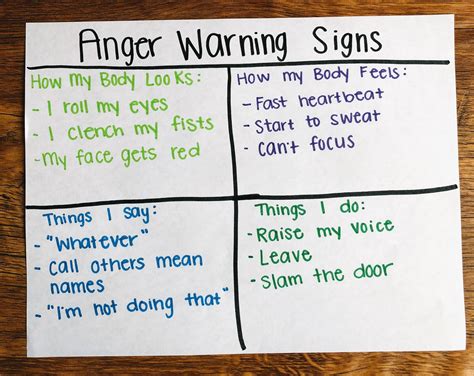 Anger Warning Signs
How my Body Looks:
- I roll my eyes
- I clench my fists
- My face gets red
How my Body Feels:
- Fast heartbeat
- Start to sweat
- Can't focus
Things I say:
- "Whatever"
- Call others mean
names
- "I'm not doing that"
Things I do:
- Raise my voice
- Leave
- Slam the door